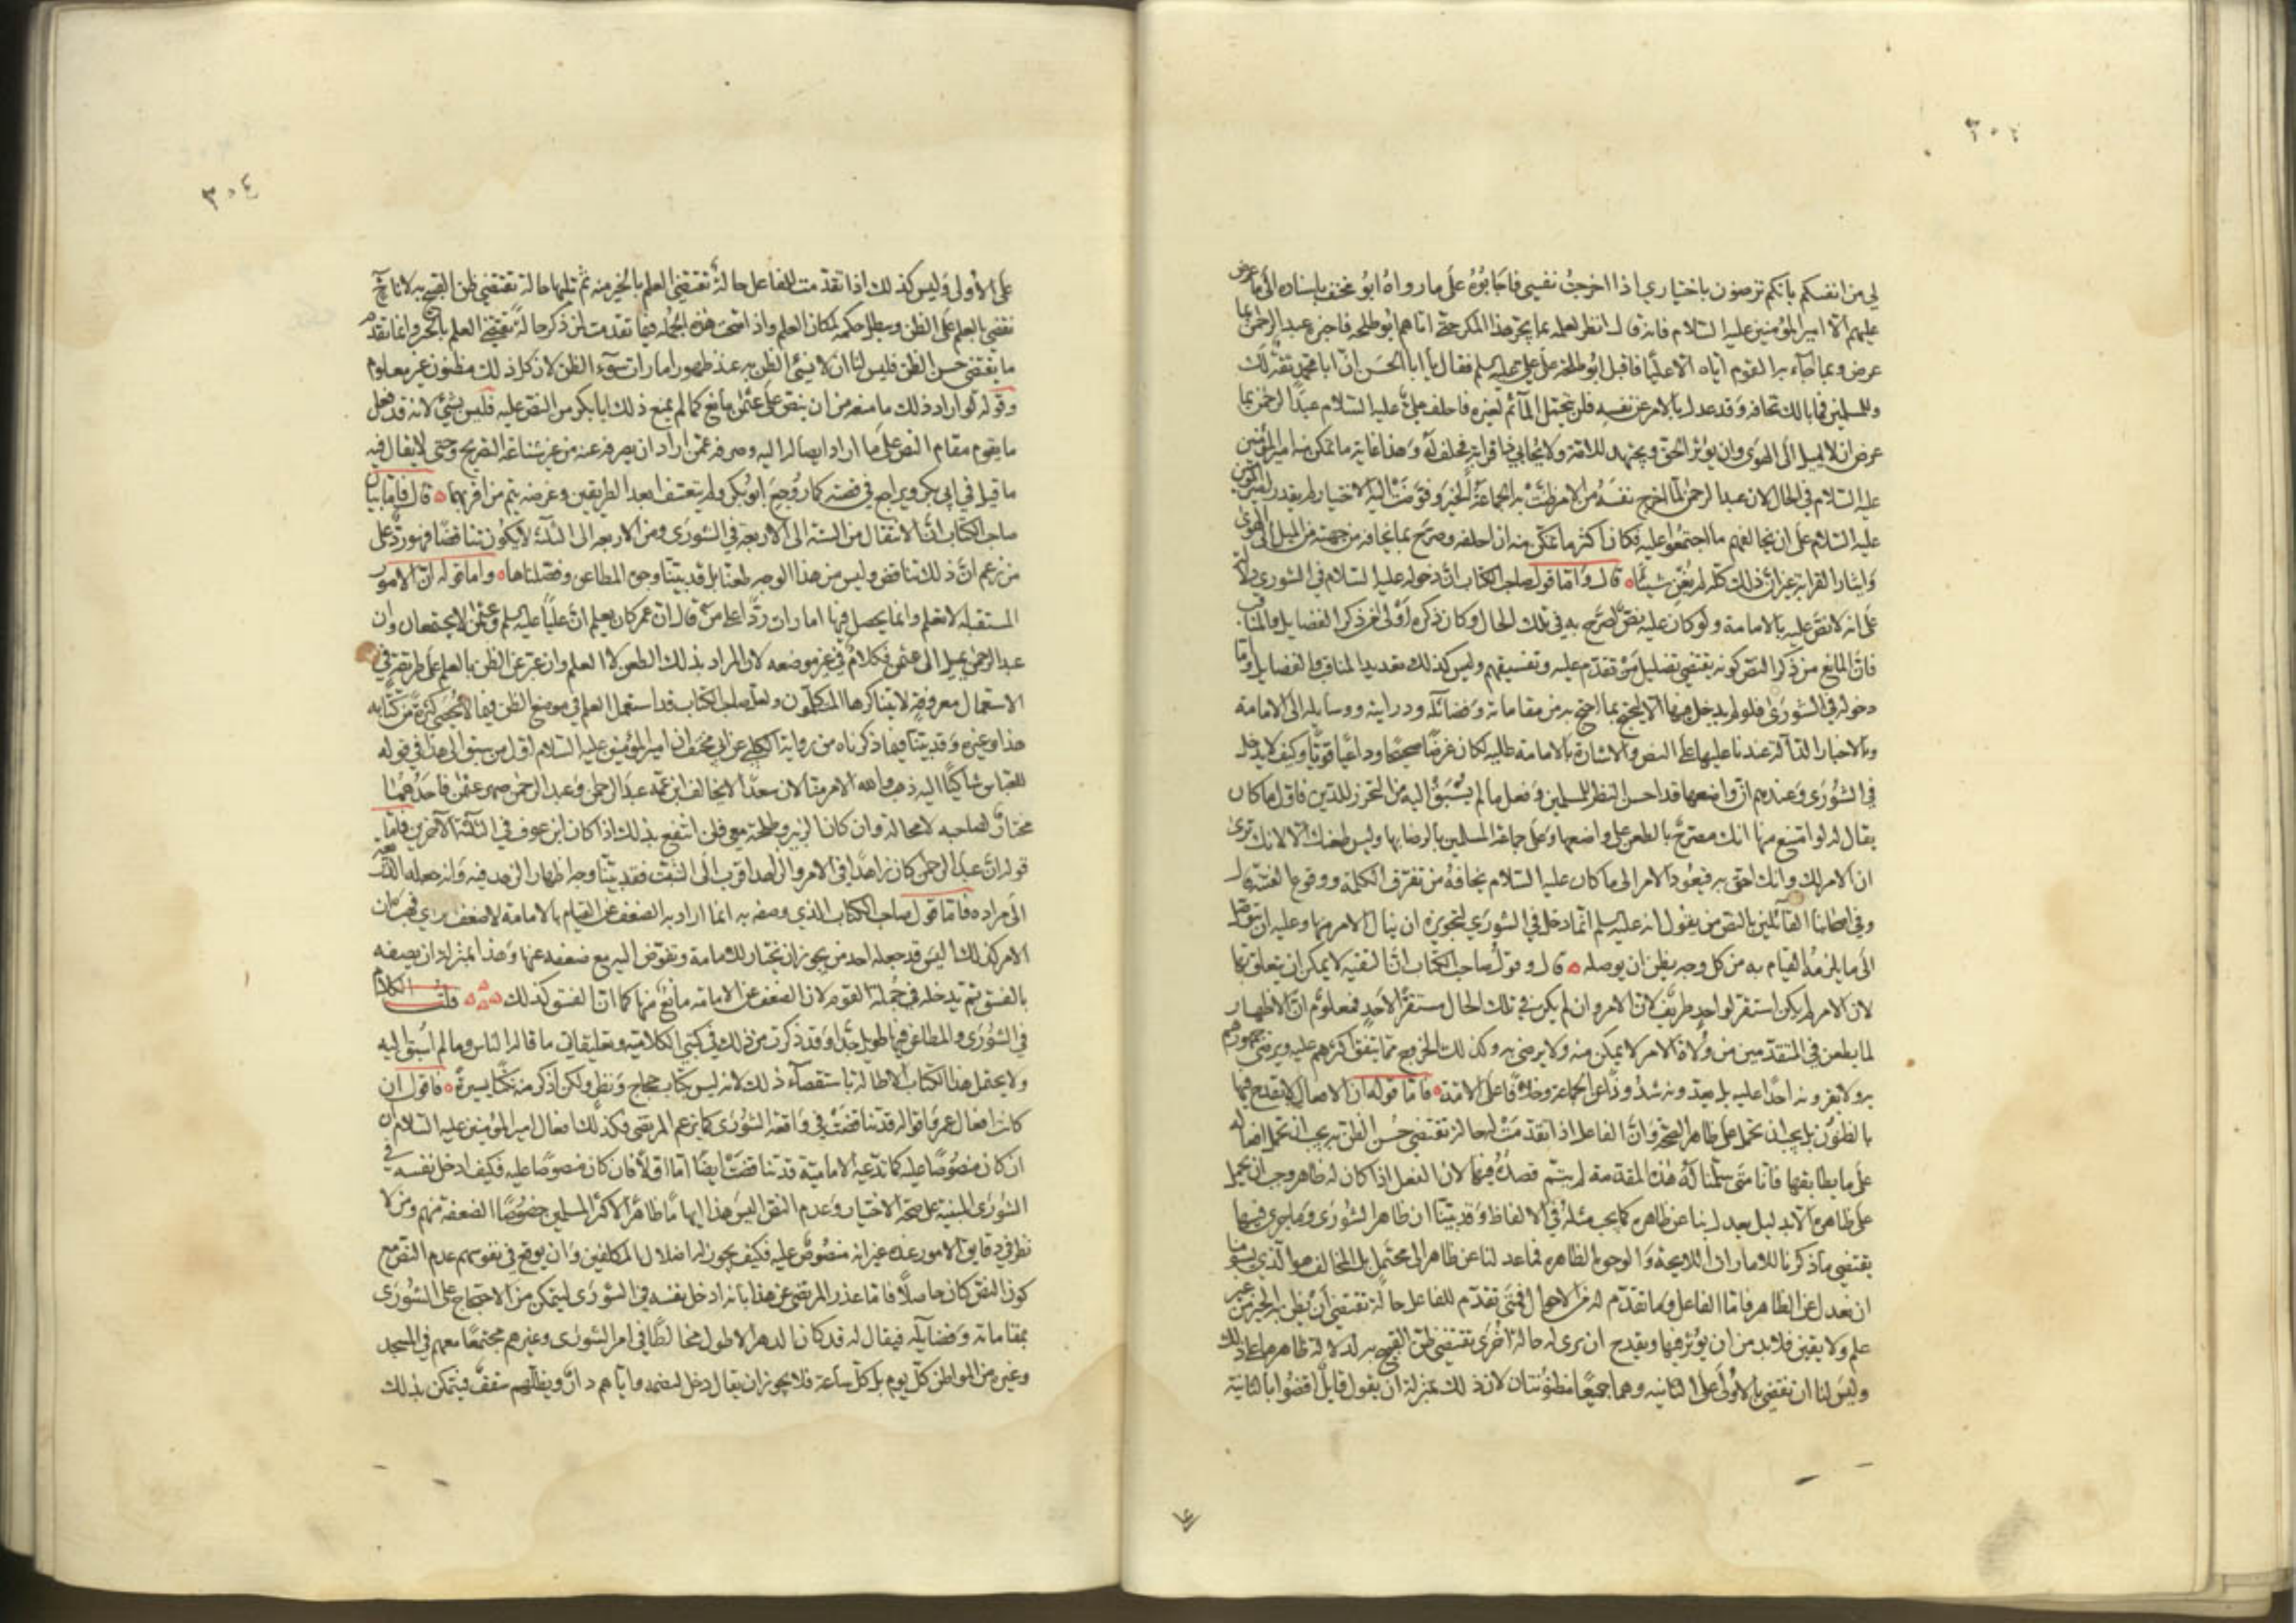 لي من انفسكم بانكم ترضون باختياري اذا اخرجت نفسي فاجابوه على ما رواه ابو مخنف باسناده الى ما عرض
عليهم الا امير المؤمنين عليه السلام فانه قال انظر لعلمه بما يجر هذا المكر حتى اتاهم ابو طلحه فاخبره عبد الرحمن بما
عرض وبما جاء به القوم اياه الا عليا فاقبل ابو طلحة على علي عليه السلم فقال يا ابا الحسن ان ابا محمد ثقة لك
وللمسلمين فما بالك تخافه وقد عدل بالامر عن نفسه فلن يتحمل المأثم لغيره فاحلف علي عليه السلام عبد الرحمن بما
عرض ان لا يميل الى الهوى وان يؤثر الحق ويجتهد للامة ولا يحابي ذا قرابة فحلف له وهذا غاية ما تمكن منه امير المؤمنين
عليه السلام في الحال لان عبد الرحمن لما اخرج نفسه من الامر ظنت به الجماعة الخير وفوضت اليه الاختيار لم يقدر امير المؤمنين
عليه السلام على ان يخالفهم ما اجتمعوا عليه فكان اكثر ما تمكن منه ان احلفه وصرح بما يخافه من جهته من الميل الى الهوى
وايثار القرابة غير ان ذلك كله لم يغن شيئا قال واما قول صاحب الكتاب ان دخوله عليه السلام في الشورى دلالة
على انه لا نص عليه بالامامة ولو كان عليه نص لصرح به في تلك الحال وكان ذكره اولى من ذكر الفضايل والمناقب
فان المانع من ذكر النص كونه يقتضي تضليل من تقدم عليه وتفسيقهم وليس كذلك تعديد المناقب والفضايل واما
دخوله في الشورى فلو لم يدخل فيها الا ليحتج بما احتج به من مقاماته وفضائله ودرايته ووسايله الى الامامة
وبالاخبار الدالة عندنا عليها على النص والاشارة بالامامة عليه لكان غرضا صحيحا وداعيا قويا وكيف لا يدخل
في الشورى وعندهم ان واضعها قد احسن النظر للمسلمين وفعل ما لم يسبق اليه من التحرز للدين فاول ما كان
يقال له لو امتنع منها انك مصرح بالطعن على واضعها وعلى جماعة المسلمين بالرضا بها وليس طعنك الا لانك ترى
ان الامر لك وانك احق به فيعود الامر الى ما كان عليه السلام يخافه من تفرق الكلمة ووقوع الفتنة قال
وفي اصحابنا القائلين بالنص من يقول انه عليه السلم انما دخل في الشورى لتجويزه ان ينال الامر منها وعليه ان يتوصل
الى ما يلزمه القيام به من كل وجه يظن ان يوصله قال وقول صاحب الكتاب ان التقية لا يمكن ان يتعلق بها
لان الامر لم يكن استقر لواحد طريف لان الامر وان لم يكن في تلك الحال مستقرا لاحد فمعلوم ان الاظهار
لما يطعن في المتقدمين من ولاة الامر لا يمكن منه ولا يرضى به وكذلك الخروج مما يتفق اكثرهم عليه ويرضى جمهورهم
به ولا يقرونه احدا عليه بل يعدونه شذوذا عن الجماعة وخلافا على الامة فاما قوله ان الافعال لا يقدح فيها
بالظنون بل يجب ان تحمل على ظاهر الصحة وان الفاعل اذا تقدمت له حالة تقتضي حسن الظن به يجب ان تحمل افعاله
على ما يطابقها فانا متى سلمنا له هذه المقدمة لم يتم قصده فيها لان الفعل اذا كان له ظاهر وجب ان يحمل
على ظاهره الا بدليل يعدل بنا عن ظاهره كما يجب مثله في الالفاظ وقد بينا ان ظاهر الشورى وما جرى فيها
يقتضي ما ذكرناه للامارات اللايحة والوجوه الظاهره فما عدلنا عن ظاهر الى محتمل بل المخالف هو الذي يسومنا
ان نعدل عن الظاهر فاما الفاعل وما تقدم له من الاحوال فمتى تقدم للفاعل حالة تقتضي ان يظن به الخير من غير
علم ولا يقين فلا بد من ان يؤثر فيها ويقدح ان يرى له حالة اخرى تقتضي ظن القبيح به لدلالة ظاهرها على ذلك
وليس لنا ان نقضي بالاولى على الثانيه وهما جميعا مظنونتان لان ذلك بمنزلة ان يقول قايل اقضوا بالثانية
على الاولى وليس كذلك اذا تقدمت للفاعل حالة تقتضي العلم بالخير منه ثم تليها حالة تقتضي ظن القبيح به لانا ح
نقضي بالعلم على الظن ويبطل حكمه لمكان العلم واذا صحت هذه الجملة فما تقدمت لمن ذكر حالة تقتضي العلم بالخير وانما تقدم
ما يقتضي حسن الظن فليس لنا ان لا نسيئ الظن به عند ظهور امارات سوء الظن لان كل ذلك مظنون غير معلوم
وقوله لو اراد ذلك ما منعه من ان ينص على عثمن مانع كما لم يمنع ذلك ابا بكر من النص عليه فليس بشيء لانه قد فعل
ما يقوم مقام النص على ما اراد ايصاله اليه وصرفه عمن اراد ان يصرفه عنه من غير شناعة التصريح وحتى لا يقال فيه
ما قيل في ابي بكر ويراجع في قصته كما روجع ابو بكر ولم يتعسف ابعد الطريقين وغرضه يتم من اقربهما قال فاما بيان
صاحب الكتاب ان الانتقال من الستة الى الاربعة في الشورى ومن الاربعه الى الثلثة لا يكون تناقضا فهو رد على
من زعم ان ذلك تناقض وليس من هذا الوجه طعنا بل قد بينا وجوه المطاعن وفصلناها واما قوله ان الامور
المستقبله لا تعلم وانما يحصل فيها امارات ردا على من قال ان عمر كان يعلم ان عليا عليه السلم وعثمن لا يجتمعان وان
عبد الرحمن يميل الى عثمن فكلام في غير موضعه لان المراد بذلك الظن لا العلم وان عبر عن الظن بالعلم على طريقة في
الاستعمال معروفة لا يتناكرها المتكلمون ولعل صاحب الكتاب قد استعمل العلم في موضع الظن فيما لا يحصى كثرة من كتابه
هذا وغيره وقد بينا فيما ذكرناه من رواية الكلبي عن ابي مخنف ان امير المؤمنين عليه السلام اول من سبق الى هذا في قوله
للعباس شاكيا اليه ذهب والله الامر منا لان سعدا لا يخالف ابن عمه عبد الرحمن وعبد الرحمن صهر عثمن فاحدهما
مختار لصاحبه لا محالة وان كان الزبير وطلحة معي فلن انتفع بذلك اذا كان ابن عوف في الثلثة الآخرين فاما
قوله ان عبد الرحمن كان زاهدا في الامر والزاهد اقرب الى التثبت فقد بينا وجه اظهاره الزهد فيه وانه جعله الذريعه
الى مراده فاما قول صاحب الكتاب الذي وصفه به انما اراد به الضعف عن القيام بالامامة لا ضعف الراي فهب ان
الامر كذلك اليس قد جعله احد من يجوز ان يختار للامامة وتفوض اليه مع ضعفه عنها وهذا بمنزلة ان يصفه
بالفسق ثم يدخله في جملة القوم لان الضعف عن الامامة مانع منها كما ان الفسق كذلك قلت الكلام
في الشورى والمطاعن فيها طويل جدا وقد ذكرت من ذلك في كتبي الكلامية وتعليقاتي ما قاله الناس وما لم اسبق اليه
ولا يحتمل هذا الكتاب الاطالة باستقصاء ذلك لانه ليس بكتاب حجاج ونظر ولكن اذكر منه نكتا يسيرة فاقول ان
كانت افعال عمر واقواله قد تناقضت في واقعة الشورى كما زعم المرتضى فكذلك افعال امير المؤمنين عليه السلام ان
ان كان منصوصا عليه كما تدعيه الامامية قد تناقضت ايضا اما اولا فان كان منصوصا عليه فكيف ادخل نفسه في
الشورى المبنية على صحة الاختيار وعدم النص اليس هذا ايهاما ظاهرا لاكثر المسلمين خصوصا الضعفة منهم ومن لا
نظر في دقايق الامور عنده غير انه منصوص عليه فكيف يجوز له اضلال المكلفين وان يوقع في نفوسهم عدم النص مع
كون النص كان حاصلا فاما عذر المرتضى عن هذا بانه ادخل نفسه في الشورى ليتمكن من الاحتجاج على الشورى
بمقاماته وفضايله فيقال له قد كان الدهر الاطول مخالطا في امر الشورى وغيرهم مجتمعا معهم في المسجد
وغيره من المواطن كل يوم بل كل ساعة فلا يجوز ان يقال دخل ليضمه واياهم دار ويظلهم سقف فيتمكن بذلك
٣٠٤